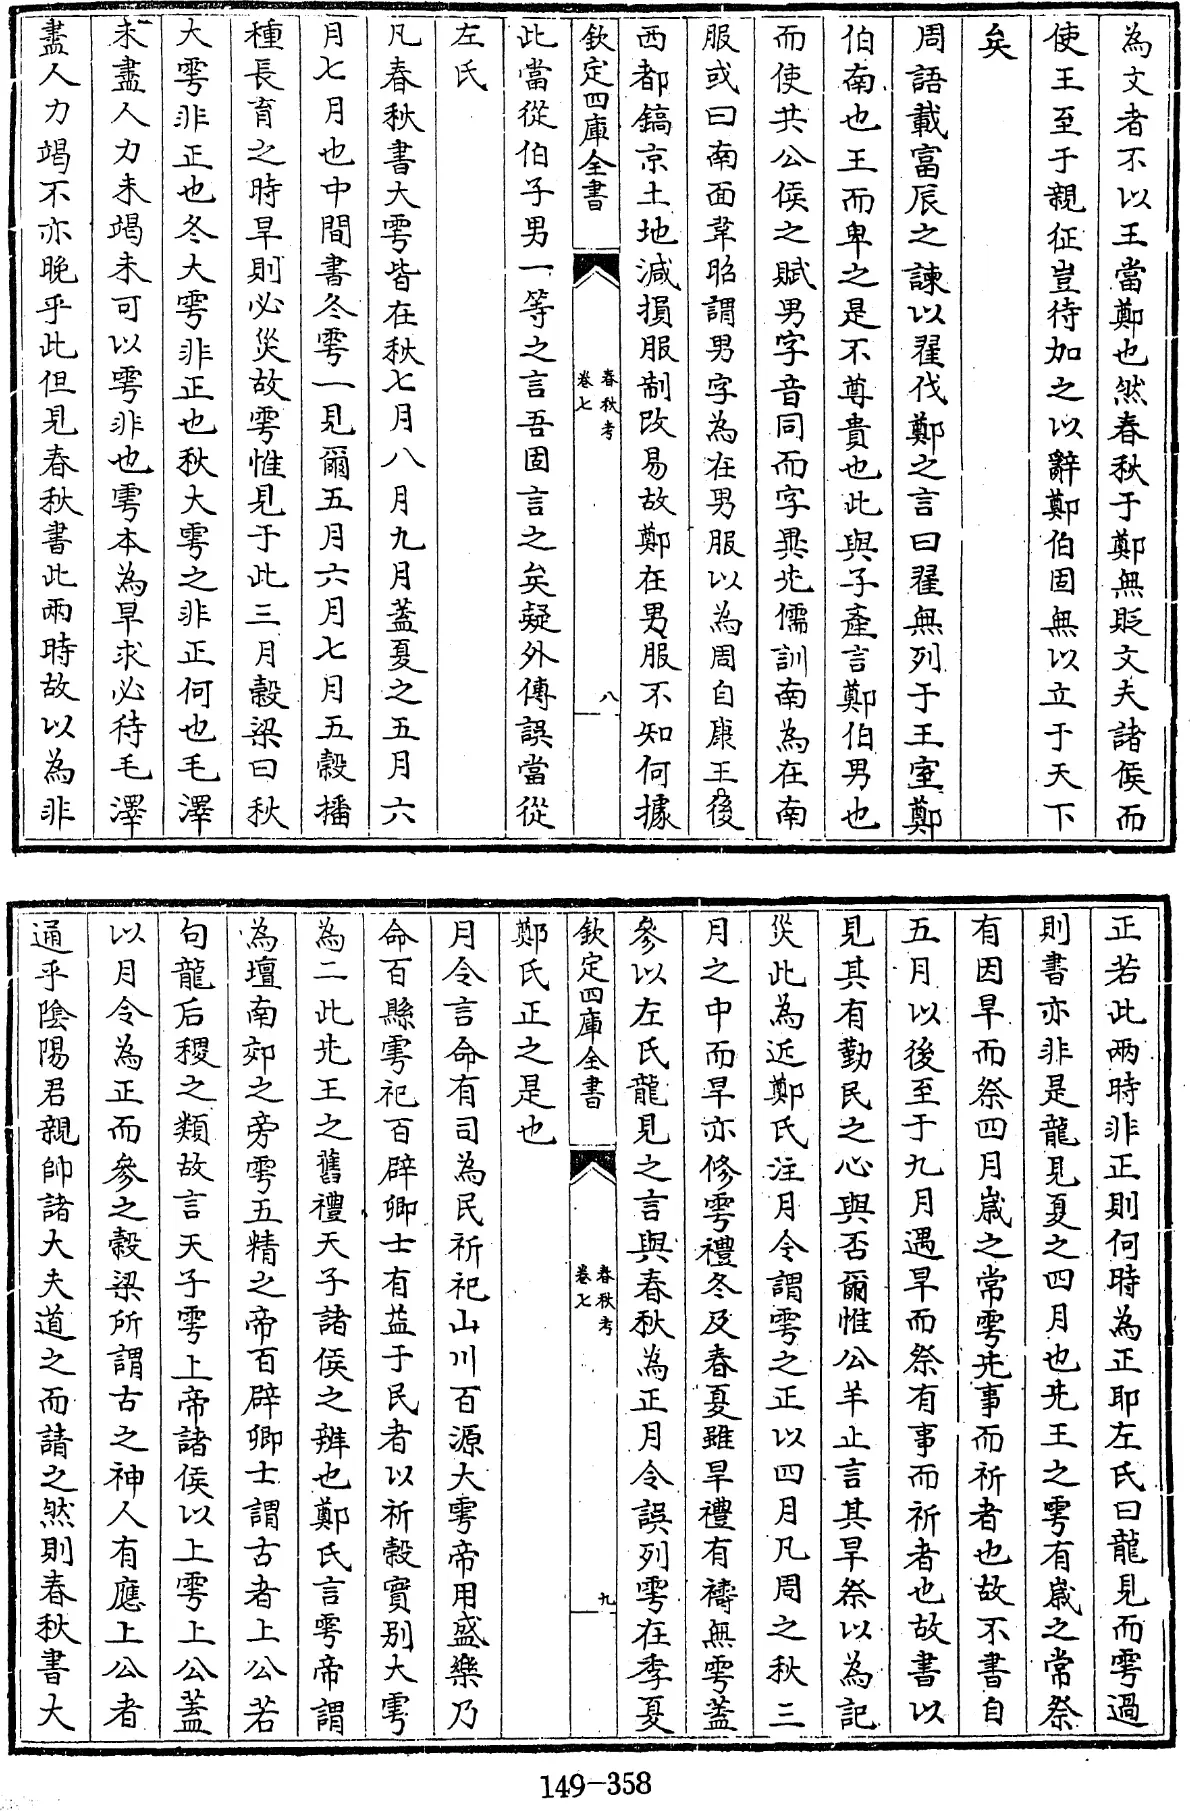 為文者不以王當鄭也然春秋于鄭無貶文夫諸侯而
使王至于親征豈待加之以辭鄭伯固無以立于天下
矣
周語載富辰之諫以翟伐鄭之言曰翟無列于王室鄭
伯南也王而卑之是不尊貴也此與子產言鄭伯男也
而使共公侯之賦男字音同而字異先儒訓南為在南
服或曰南面韋昭謂男字為在男服以為周自康王後
西都鎬京土地減損服制改易故鄭在男服不知何據
欽定四庫全書
春秋考
卷七
八
此當從伯子男一等之言吾固言之矣疑外傳誤當從
左氏
凡春秋書大雩皆在秋七月八月九月蓋夏之五月六
月七月也中間書冬雩一見爾五月六月七月五穀播
種長育之時旱則必災故雩惟見于此三月穀梁曰秋
大雩非正也冬大雩非正也秋大雩之非正何也毛澤
未盡人力未竭未可以雩非也雩本為旱求必待毛澤
盡人力竭不亦晚乎此但見春秋書此兩時故以為非
正若此兩時非正則何時為正耶左氏曰龍見而雩過
則書亦非是龍見夏之四月也先王之雩有歲之常祭
有因旱而祭四月歲之常雩先事而祈者也故不書自
五月以後至于九月遇旱而祭有事而祈者也故書以
見其有勤民之心與否爾惟公羊止言其旱祭以為記
災此為近鄭氏注月令謂雩之正以四月凡周之秋三
月之中而旱亦修雩禮冬及春夏雖旱禮有禱無雩蓋
參以左氏龍見之言與春秋為正月令誤列雩在季夏
欽定四庫全書
春秋考
卷七
九
鄭氏正之是也
月令言命有司為民祈祀山川百源大雩帝用盛樂乃
命百縣雩祀百辟卿士有益于民者以祈穀實別大雩
為二此先王之舊禮天子諸侯之辨也鄭氏言雩帝謂
為壇南郊之旁雩五精之帝百辟卿士謂古者上公若
句龍后稷之類故言天子雩上帝諸侯以上雩上公蓋
以月令為正而參之穀梁所謂古之神人有應上公者
通乎陰陽君親帥諸大夫道之而請之然則春秋書大
149-358